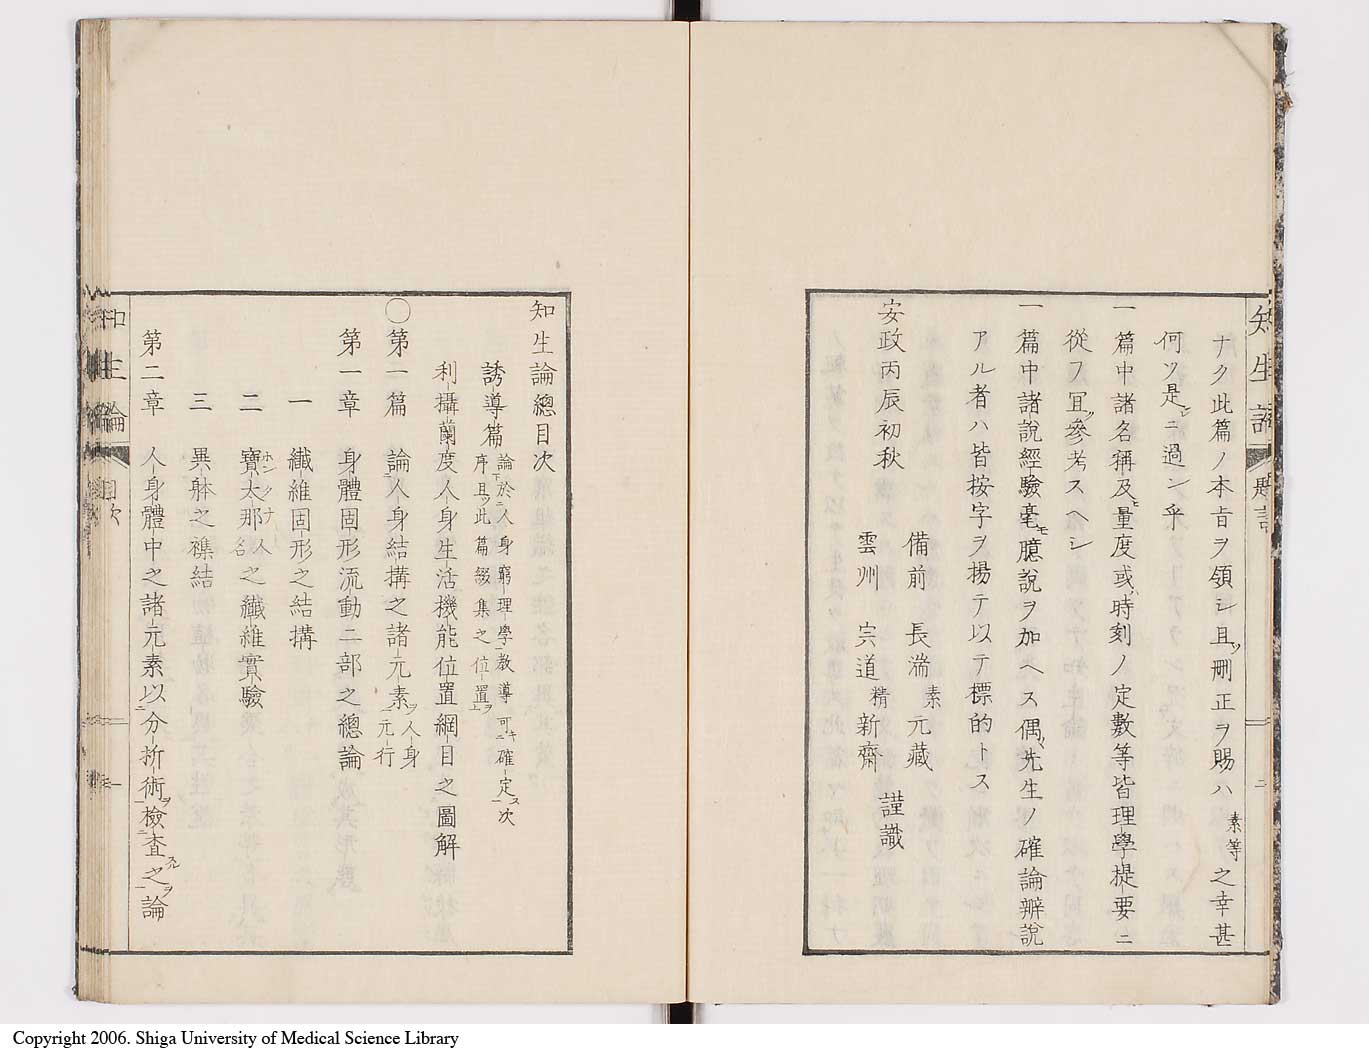 ナク此篇ノ本旨ヲ領シ且ツ刪正ヲ賜ハ素等之幸甚
何ツ是レニ過ン乎
一篇中諸名稱及ヒ量度或ハ時刻ノ定數等皆理學提要ニ
從フ冝ツ參考スヘシ
一篇中諸說經驗毫モ臆說ヲ加ヘス偶〻先生ノ確論辨說
アル者ハ皆按字ヲ揚テ以テ標的トス
安政丙辰初秋
備前 長 素元藏
雲州 宍道 精新齋
謹識
知生論 題言
二
知生論總目次
誘導篇 論於人身窮理學教導可キ確定ス次
序且ツ此篇綴集之位置ヲ
利攝蘭度人身生活機能位置綱目之圖解
〇第一篇 論人身結搆之諸元素ヲ 人身
元行
第一章 身體固形流動二部之總論
一 纖維固形之結搆
二 寶太那人名之纖維實驗
ホンタナ
三 異躰之襍結
第二章 人身體中之諸元素以分析術ヲ檢査スル之ヲ論
知生論 目次
一
Copyright 2006. Shiga University of Medical Science Library